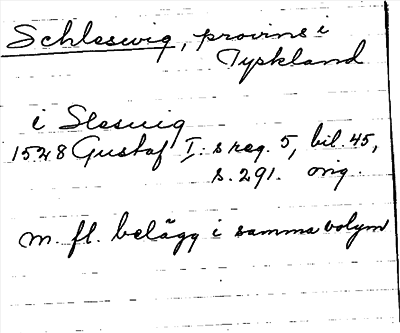 Schleswig, provins i
Tyskland
i Slesuig
1528 Gustaf I:s reg. 5, bil. 45,
s. 291. orig.
m. fl. belägg i samma volym